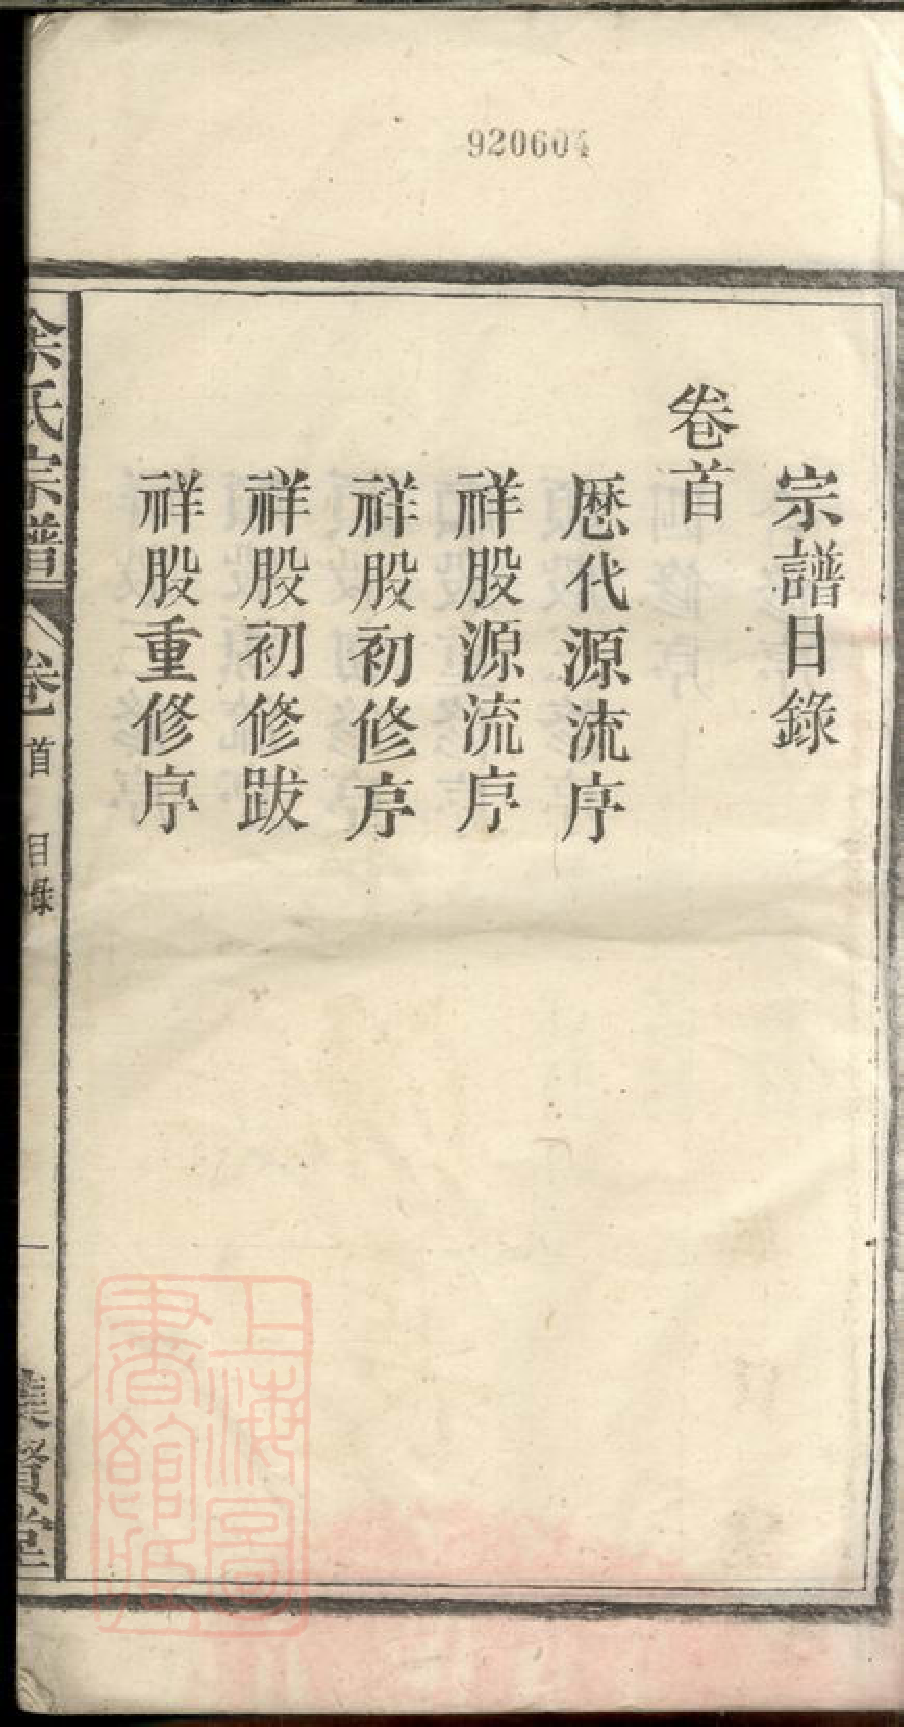 920604
宗譜目錄
卷首
歷代源流序
祥股源流序
祥股初修序
祥股初修跋
祥股重修序
氏宗譜
卷
首
目錄
一
上海圖
書館藏